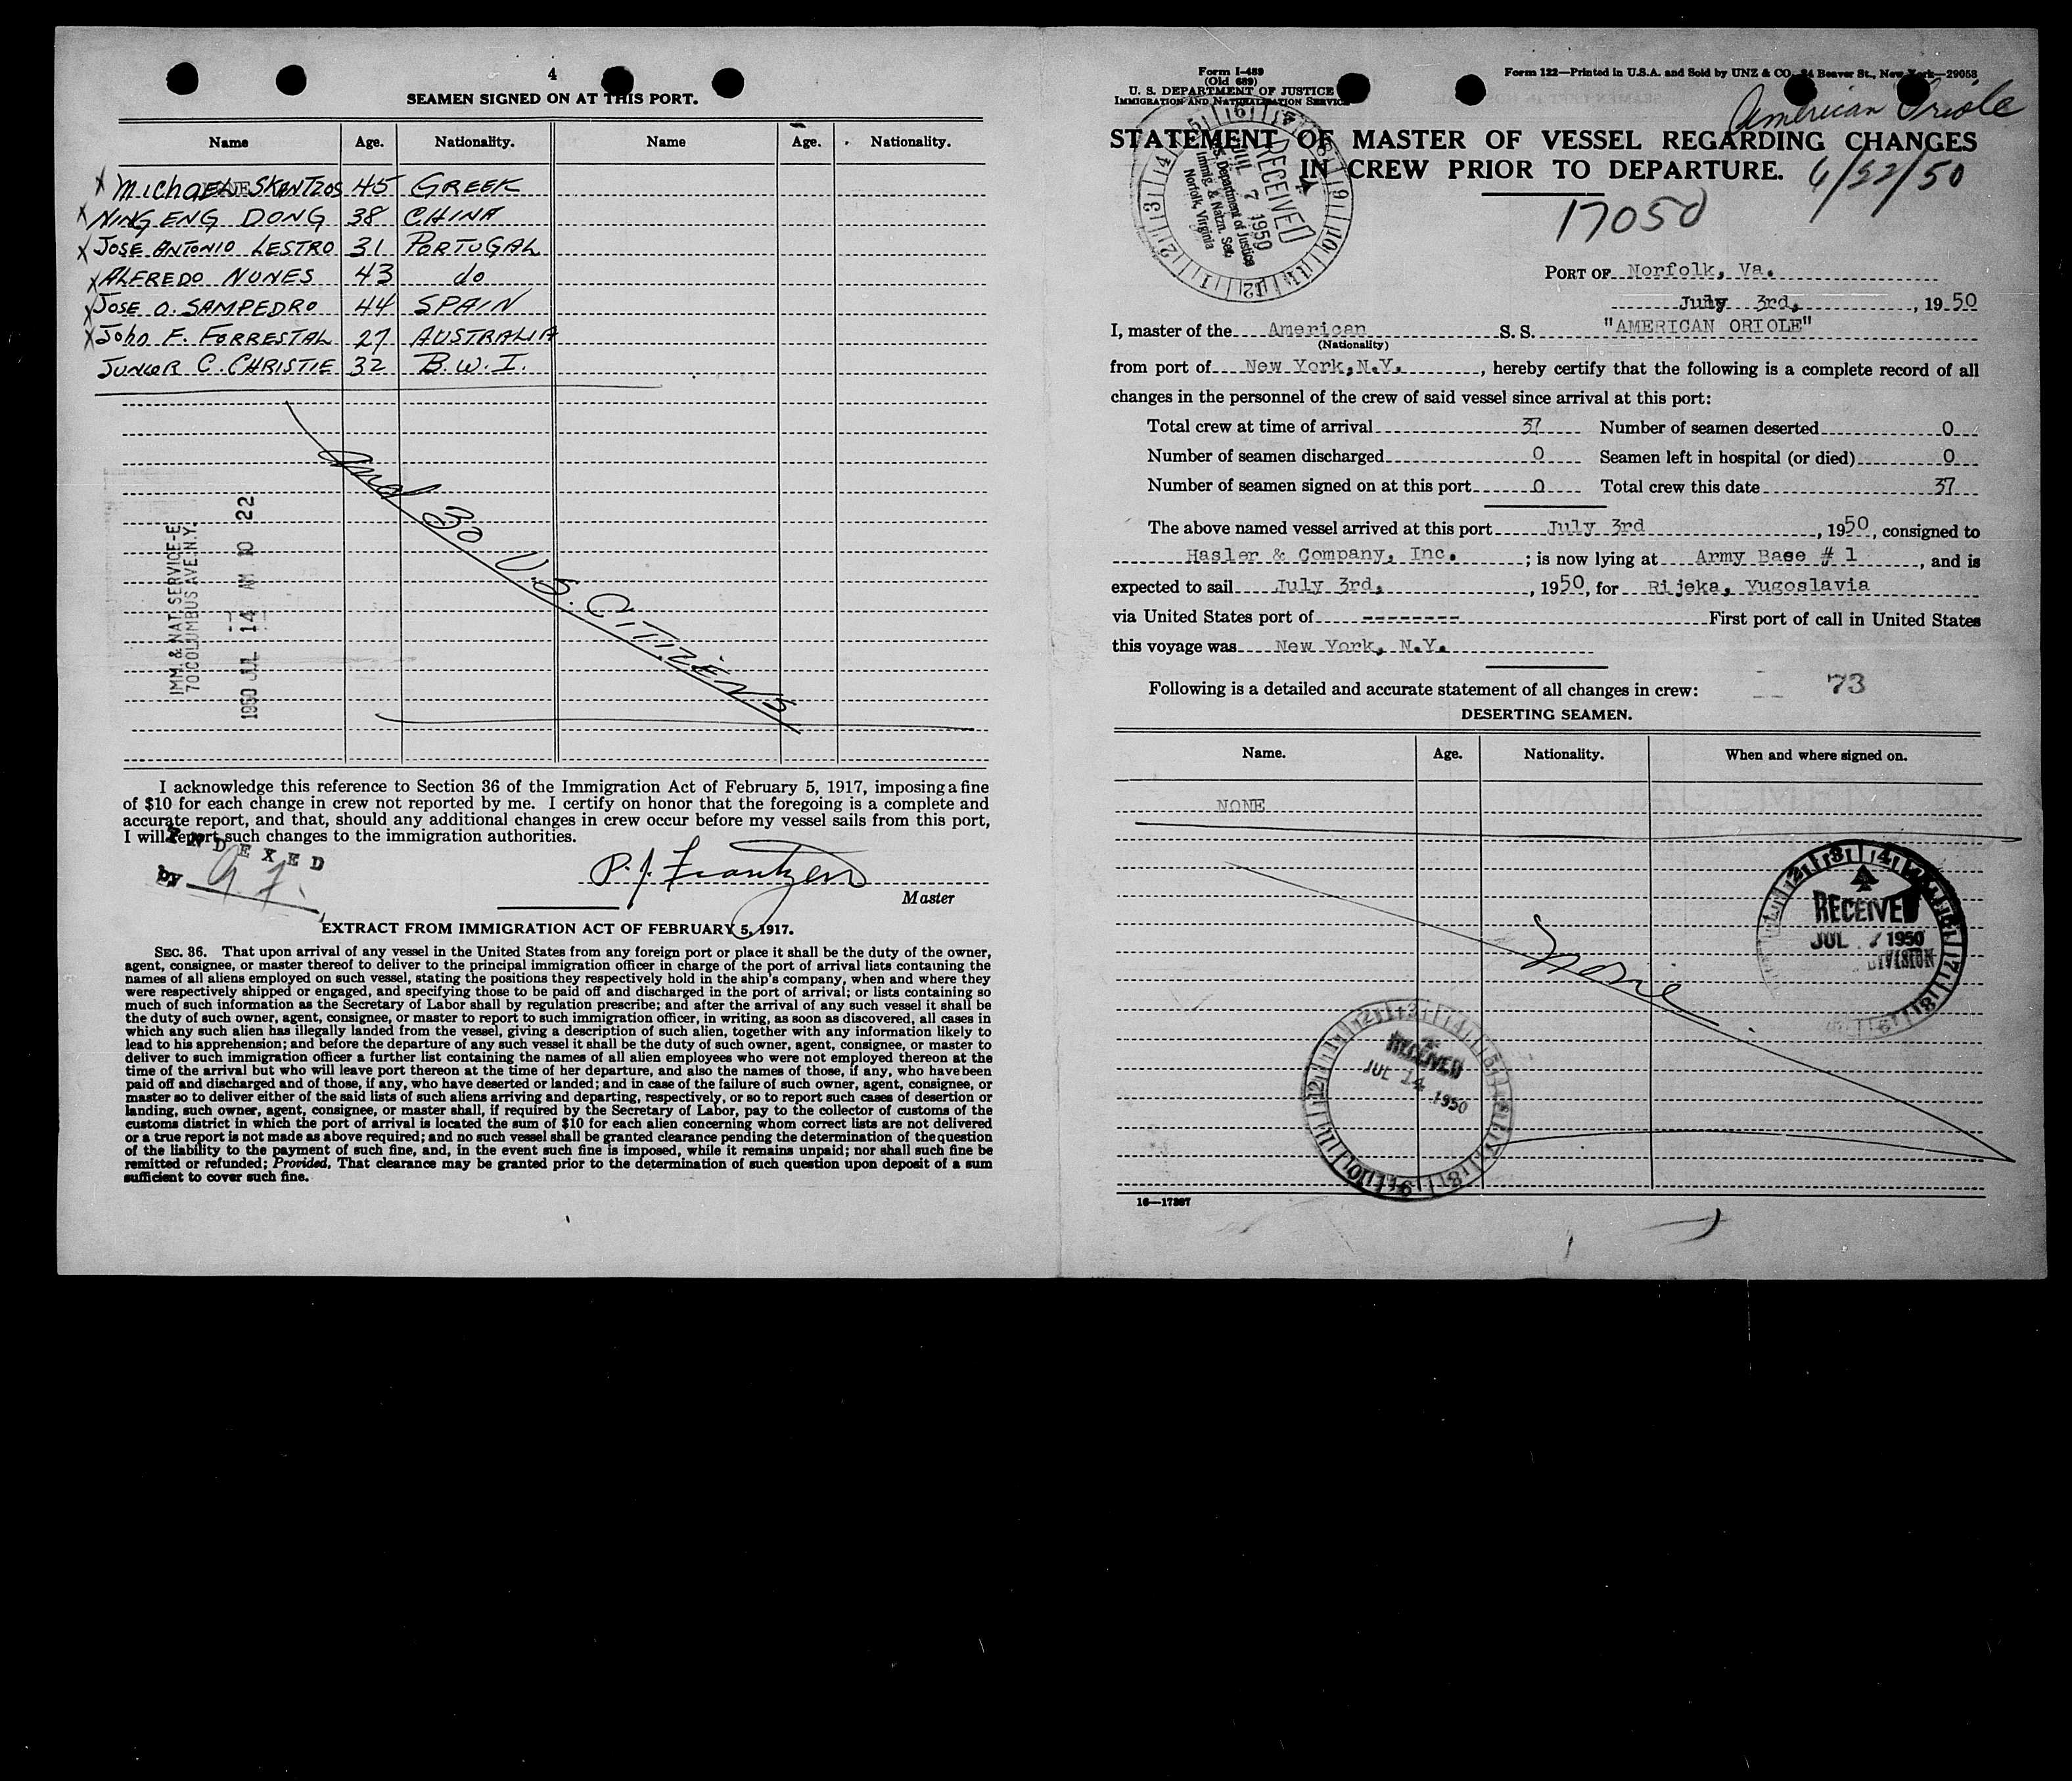 4
SEAMEN SIGNED ON AT THIS PORT.
Name Age. Nationality. Name Age. Nationality.
x Michael SKENTZOS 45 GREEK
x NING ENG DONG 38 CHINA
x JOSE ANTONIO LESTRO 31 PORTUGAL
x ALFREDO NUNES 43 do
x JOSE O. SAMPEDRO 44 SPAIN
x John F. FORRESTAL 27 AUSTRALIA
JUNIOR C. CHRISTIE 32 B.W.I.
and 30 U.S. CITIZENS
IMM. & NAT. SERVICE-E
70 COLUMBUS AVE. N.Y.
1950 JUL 14 AM 10 22
I acknowledge this reference to Section 36 of the Immigration Act of February 5, 1917, imposing a fine
of $10 for each change in crew not reported by me. I certify on honor that the foregoing is a complete and
accurate report, and that, should any additional changes in crew occur before my vessel sails from this port,
I will report such changes to the immigration authorities.
INDEXED
by
P. J. Frantzen
Master
EXTRACT FROM IMMIGRATION ACT OF FEBRUARY 5, 1917.
SEC. 36. That upon arrival of any vessel in the United States from any foreign port or place it shall be the duty of the owner,
agent, consignee, or master thereof to deliver to the principal immigration officer in charge of the port of arrival lists containing the
names of all aliens employed on such vessel, stating the positions they respectively hold in the ship's company, when and where they
were respectively shipped or engaged, and specifying those to be paid off and discharged in the port of arrival; or lists containing so
much of such information as the Secretary of Labor shall by regulation prescribe; and after the arrival of any such vessel it shall be
the duty of such owner, agent, consignee, or master to report to such immigration officer, in writing, as soon as discovered, all cases in
which any such alien has illegally landed from the vessel, giving a description of such alien, together with any information likely to
lead to his apprehension; and before the departure of any such vessel it shall be the duty of such owner, agent, consignee, or master to
deliver to such immigration officer a further list containing the names of all alien employees who were not employed thereon at the
time of the arrival but who will leave port thereon at the time of her departure, and also the names of those, if any, who have been
paid off and discharged and of those, if any, who have deserted or landed; and in case of the failure of such owner, agent, consignee, or
master so to deliver either of the said lists of such aliens arriving and departing, respectively, or so to report such cases of desertion or
landing, such owner, agent, consignee, or master shall, if required by the Secretary of Labor, pay to the collector of customs of the
customs district in which the port of arrival is located the sum of $10 for each alien concerning whom correct lists are not delivered
or a true report is not made as above required; and no such vessel shall be granted clearance pending the determination of the question
of the liability to the payment of such fine, and, in the event such fine is imposed, while it remains unpaid; nor shall such fine be
remitted or refunded; Provided, That clearance may be granted prior to the determination of such question upon deposit of a sum
sufficient to cover such fine.
Form I-489
(Old 689)
U. S. DEPARTMENT OF JUSTICE
IMMIGRATION AND NATURALIZATION SERVICE
Form 122—Printed in U.S.A. and Sold by UNZ & CO., 24 Beaver St., New York—29058
American Oriole
STATEMENT OF MASTER OF VESSEL REGARDING CHANGES
IN CREW PRIOR TO DEPARTURE.
6/22/50
17050
RECEIVED
JUL 7 1950
U.S. Department of Justice
Immig. & Natzn. Ser.
Norfolk, Virginia
PORT OF Norfolk, Va.
July 3rd, , 1950
I, master of the American S. S. "AMERICAN ORIOLE"
(Nationality)
from port of New York, N.Y. , hereby certify that the following is a complete record of all
changes in the personnel of the crew of said vessel since arrival at this port:
Total crew at time of arrival 37 Number of seamen deserted 0
Number of seamen discharged 0 Seamen left in hospital (or died) 0
Number of seamen signed on at this port 0 Total crew this date 37
The above named vessel arrived at this port July 3rd , 1950, consigned to
Hasler & Company, Inc. ; is now lying at Army Base # 1 , and is
expected to sail July 3rd, , 1950, for Rijeka, Yugoslavia
via United States port of -------- First port of call in United States
this voyage was New York, N.Y.
Following is a detailed and accurate statement of all changes in crew: 73
DESERTING SEAMEN.
Name. Age. Nationality. When and where signed on.
NONE
None
RECEIVED
JUL 7 1950
DIVISION
RECEIVED
JUL 14 1950
16—17397